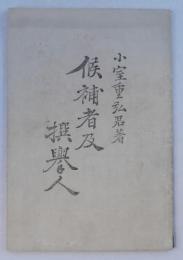 小室重弘君著
候補者及
撰擧人